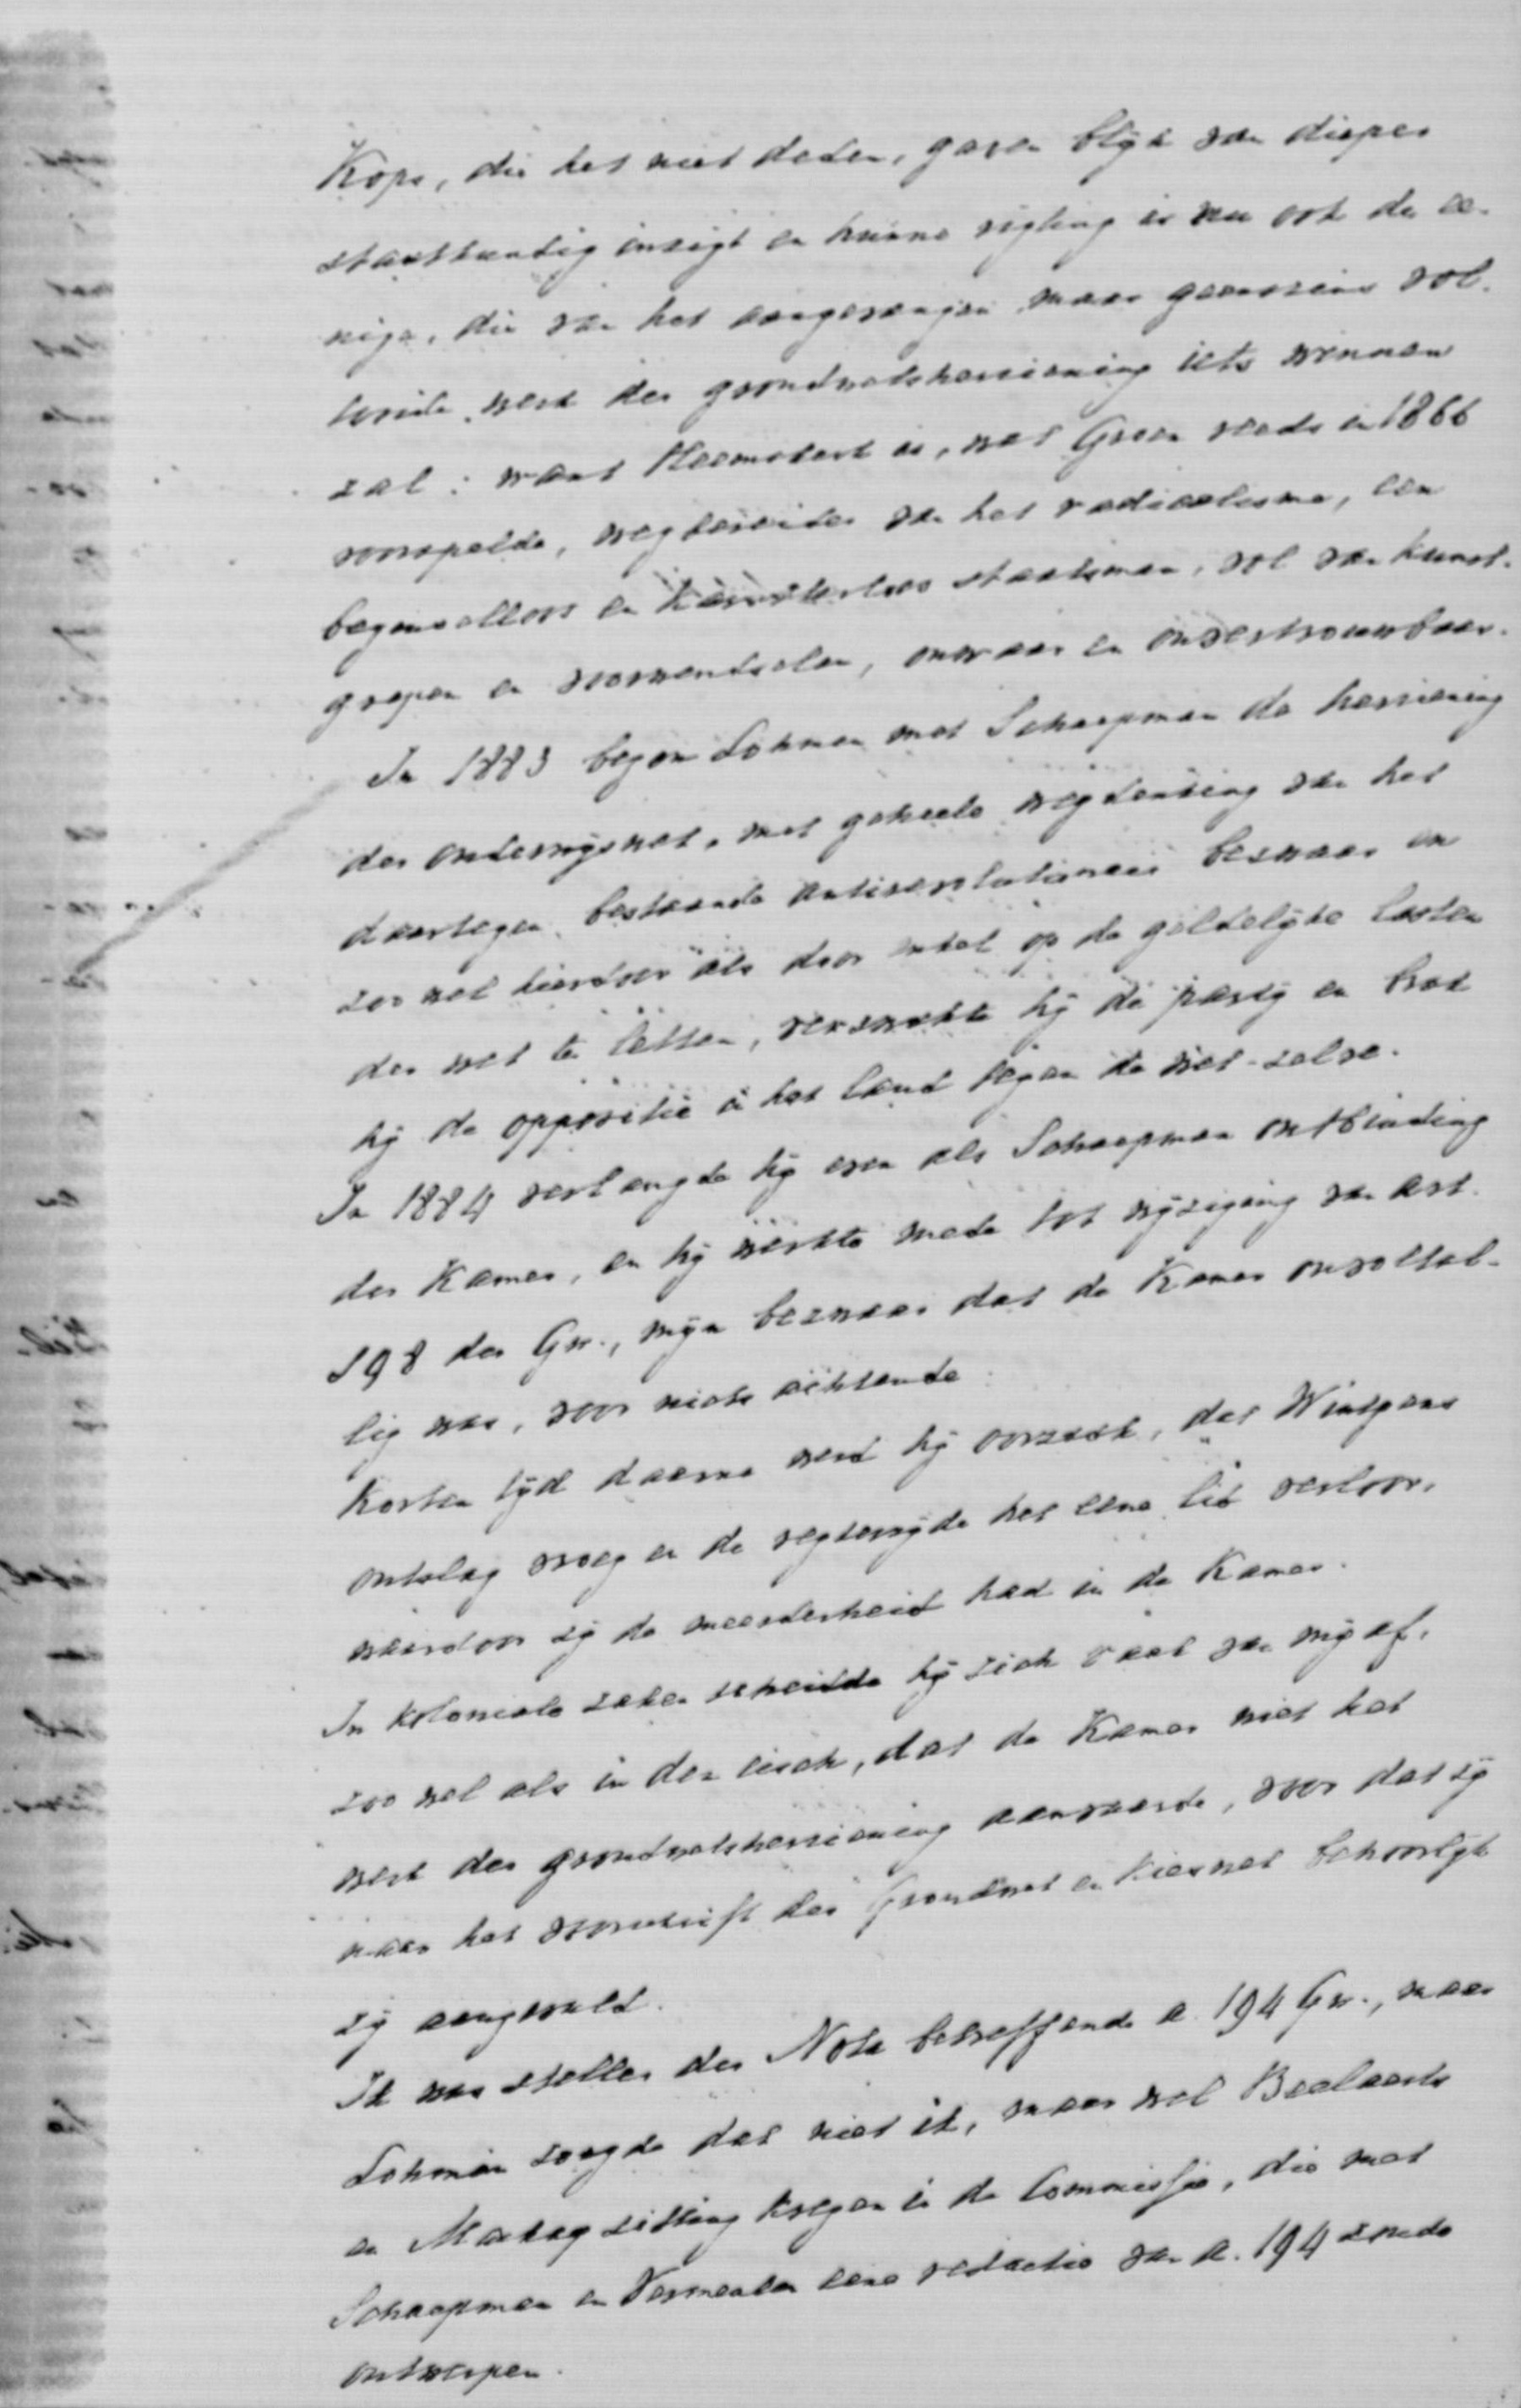 Kops, die het niet deden, gaven blijk van dieper
staatkundig inzigt en hunne rigting is nu ook de ee-
nige, die van het aangevangen maar geenszins vol-
tooide werk der grondwetsherziening iets winnen
zal: want Heemskerk is, wat Groen reeds in 1866
voorspelde, wegbereider van het radicalisme, een
beginselloos en karakterloos staatsman, vol van kunst-
grepen en voorwendselen, onwaar en onvertrouwbaar.
In 1883 begon Lohman met Schaepman de herziening
der onderwijswet, met geheele wegdenking van het
daartegen bestaande antirevolutionair bezwaar en
zoo wel hierdoor als door enkel op de geldelijke lasten
der wet te letten, verzwakte hij de partij en brak
hij de oppositie in het land tegen de wet-zelve.
In 1884 verlangde hij even als Schaepman ontbinding
der Kamer, en hij werkte mede tot wijziging van art.
198 der Gw., mijn bezwaar dat de Kamer onvoltal-
lig was, voor niets achtende.
Korten tijd daarna werd hij oorzaak, dat Wintgens
ontslag vroeg en de regterzijde het eene lid verloor,
waardoor zij de meerderheid had in de Kamer.
In koloniale zaken scheidde hij zich vaak van mij af,
zoo wel als in den eisch, dat de Kamer niet het
werk der grondwetsherziening aanvaarde, voor dat zij
naar het voorschrift der Grondwet en Kieswet behoorlijk
zij aangevuld.
Ik was steller der Nota betreffende a. 194 Gw., maar
Lohman zorgde dat niet ik, maar wel Beelaerts
en Mackay zitting kregen in de Commissie, die met
Schaepman en Vermeulen eene redactie van a. 194 zoude
ontwerpen.